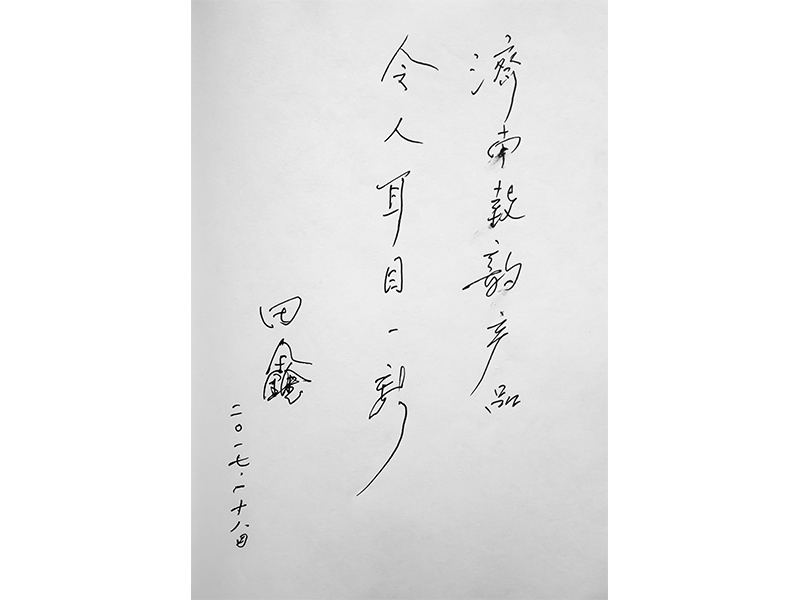 濟南鼓韵产品
令人耳目一新
田鑫
二〇一七.十八日